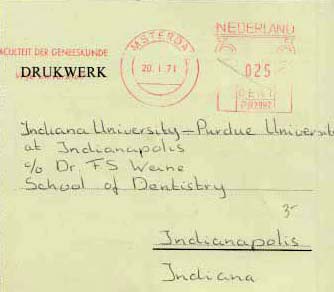 NEDERLAND
MSTERDA
ACULTEIT DER GENEESKUNDE
20. I. 71
025
DRUKWERK
CENT
Indiana University-Purdue Universit
at Indianapolis
c/o Dr F.S Weine
School of Dentistry
3-
Indianapolis
Indiana